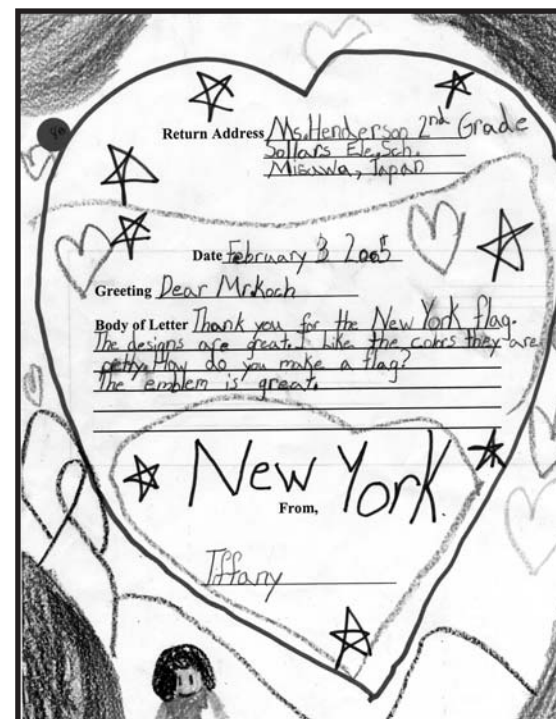 Return Address Ms. Henderson 2nd Grade
Sollars Ele. Sch.
Misawa, Japan
Date February 3 2005
Greeting Dear Mr. Koch
Body of Letter Thank you for the New York flag.
The designs are great. I like the colors they are
petty. How do you make a flag?
The emblem is great.
New York
From,
Tffany